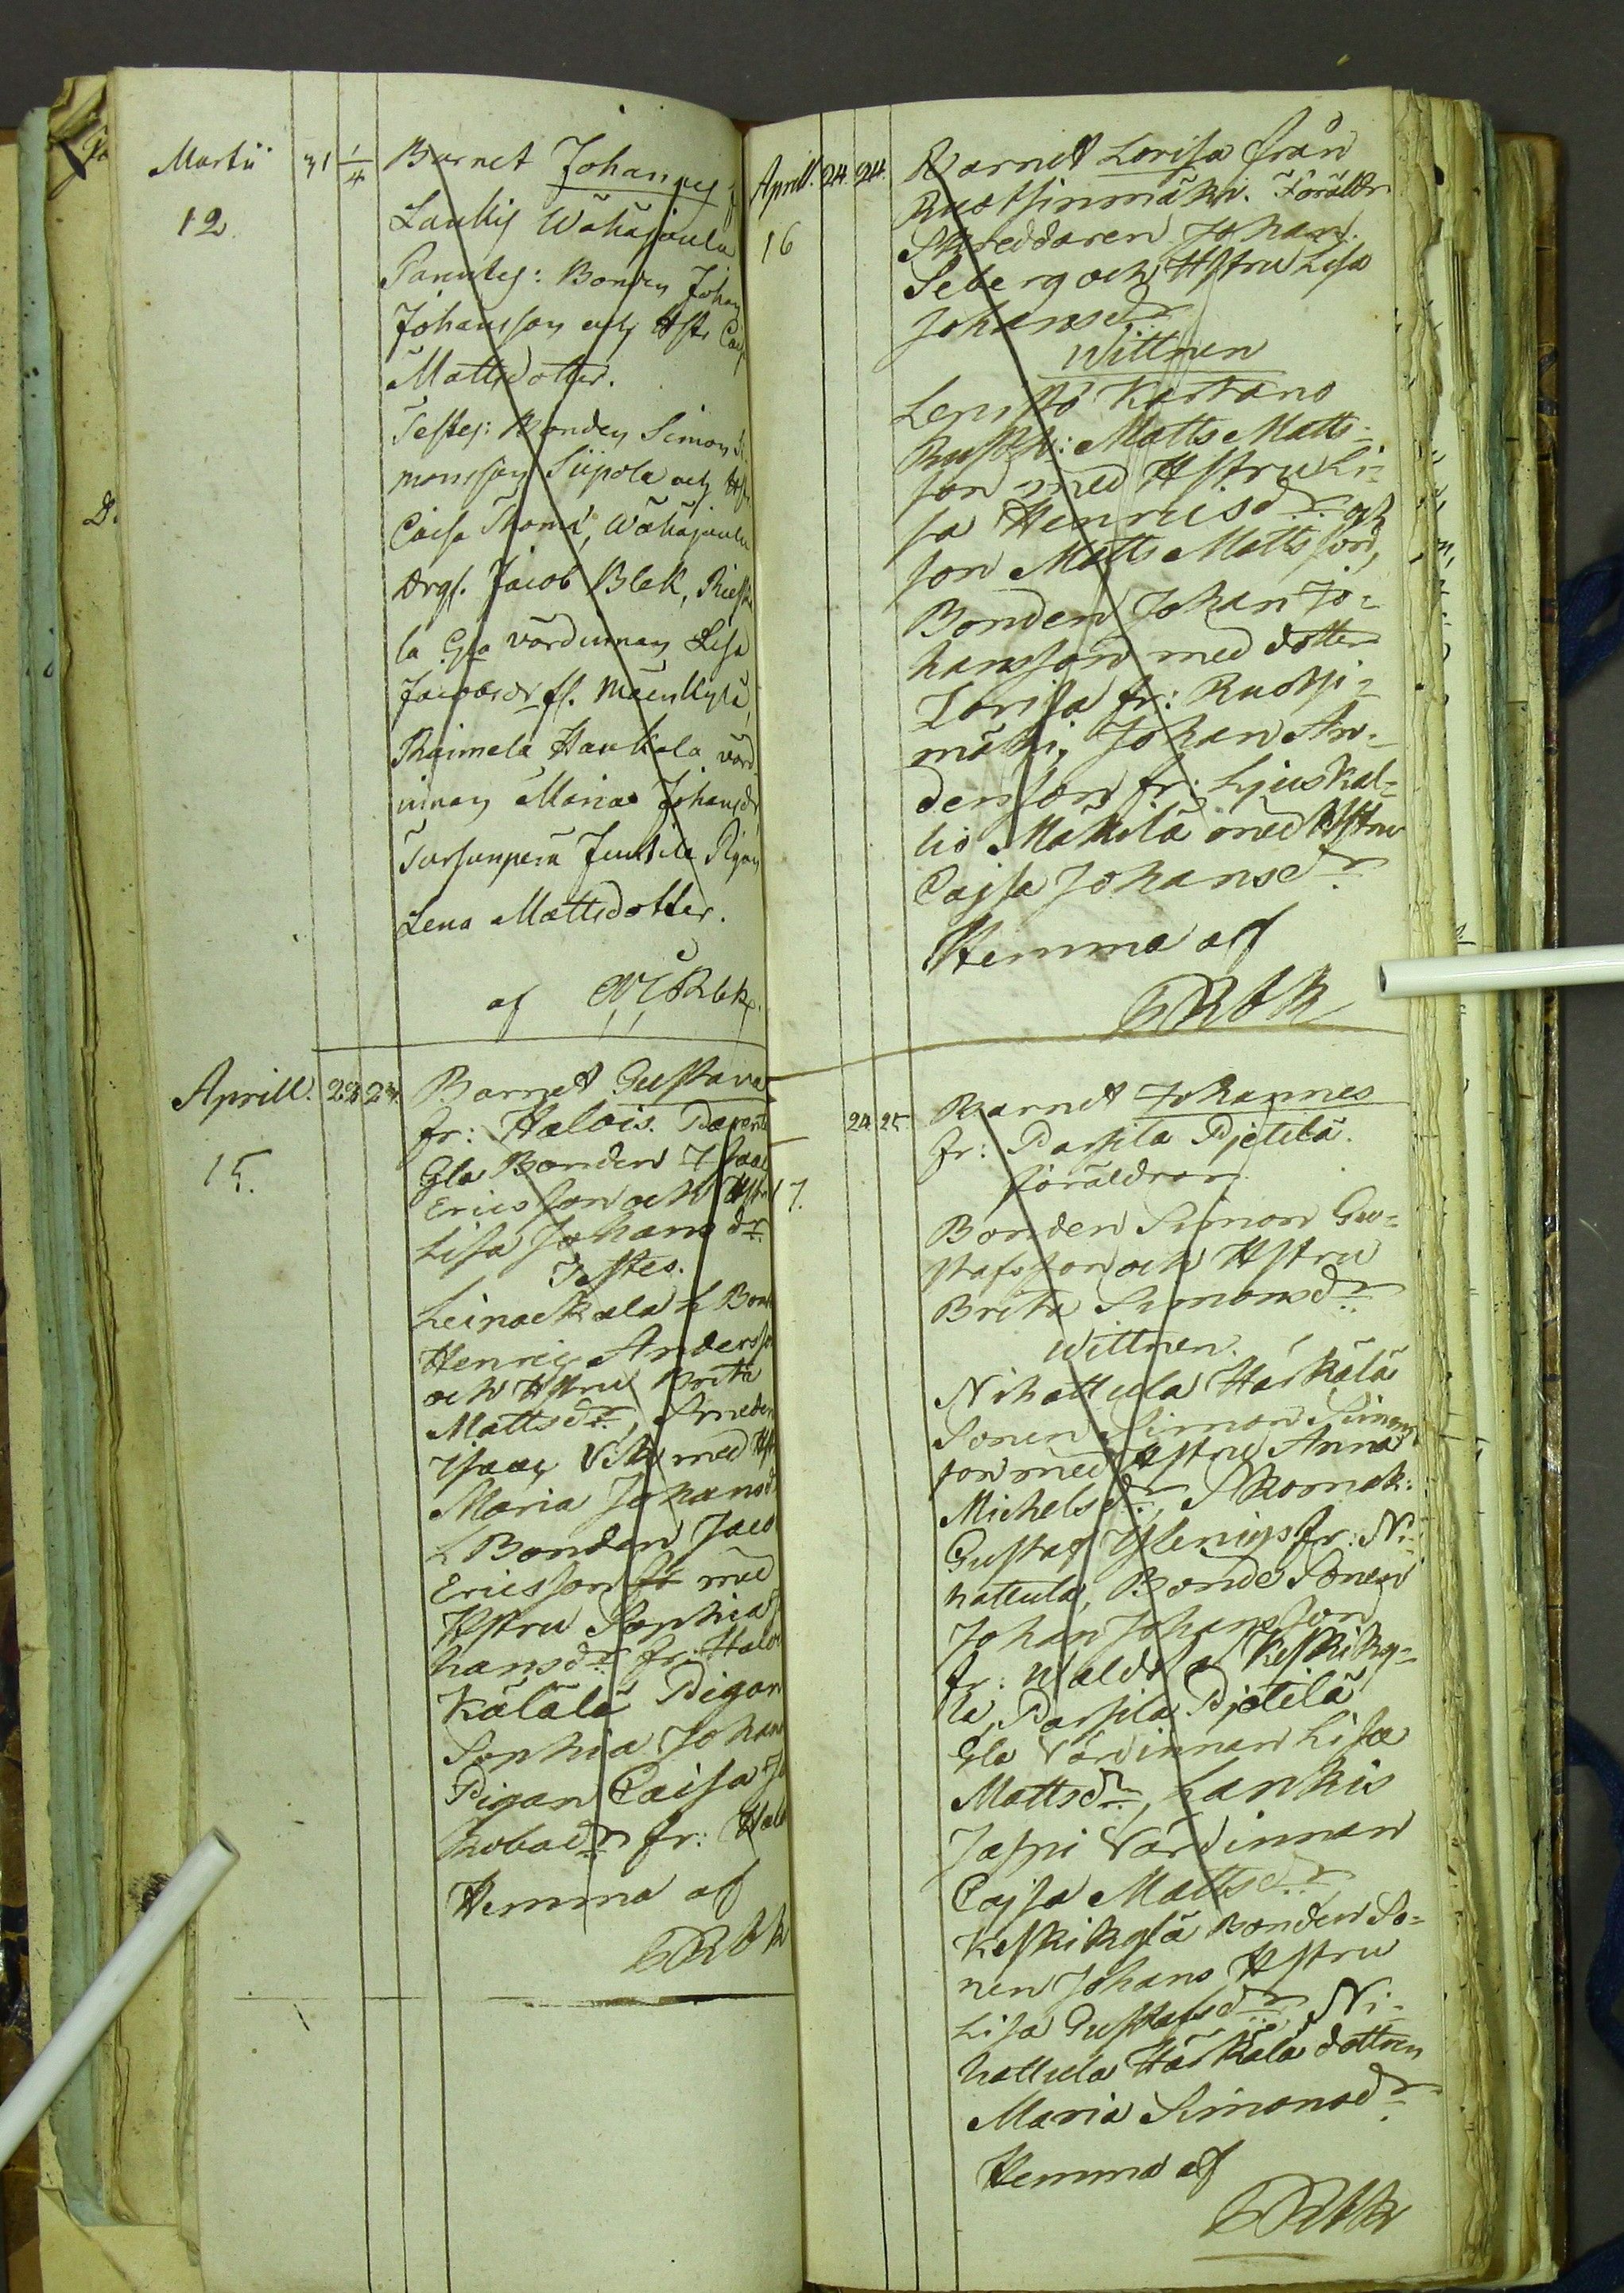 Martii 31 1/4 Barnet Johannes f
12. Laukis Wähäjoula
Parentes: Bonden Johan
Johansson och Hstr Caj
Mattsdotter.
Testes: Bonden Simon Si
monsson Siipola och Hst
Caisa Thoms, Wähäjoula
Drgs. Jacob Blek, Rieska
la Gla värdinnan Lisa
Jacobsdr fl. Mäenkylä,
Raimela Haukola värd
innan Maria Johansdr
Torsunperä Junkila Pigan
Lena Mattsdotter.
af
Aprill. 22 23. Barnet Gustava
fr: Halois. Parent
15. Gla Bonden Isaac
Ericsson och Hstr
Lisa Johansdr.
Testes.
Leinackala L Bond
Henric Andersso
och Hstru Brita
Mattsdr, Smeden
Isaac Vik med Hst
Maria Johansd
L Bonden Jaco
Ericsson med
Hstru Sophia J
hansdr fr: Halo
Kälälä Pigan
Sophia Johans
Pigan Caisa Ja
kobsdr fr: Halo
Hemma af
Aprill. 24. 24. Barnet Lovisa från
Ruotsinmäki. Föräldr.
16 Skreddaren Johan
Seberg och Hstru Lisa
Johansdr
Wittnen
Lempö Kartano
Rusth: Matts Matts-
son med Hstru Li-
sa Henricsdr och
son Matts Mattsson,
Bonden Johan Jo-
hansson med dotter
Lovisa fr: Ruotsi-
mäki, Johan An-
dersson fr: Ljuskal-
lio Mäkilä med Hstru
Cajsa Johansdr
Hemma af
24 25 Barnet Johannes
fr: Parsila Pjetilä.
föräldrar
17. Bonden Simon Gu-
stafsson och Hstru
Brita Simonsdr
Wittnen.
Nihattula Härkälä
Sonen Simon Simons
son med Hstru Anna
Michelsdr, Skomak:
Gustaf Ylenius fr: Ni-
hattula, Bonde Sonen
Johan Johansson
fr: Keskiky-
lä, Parsila Pjetilä
Gla Värdinnan Lisa
Mattsdr, Lankis
Jaspi Värdinnan
Cajsa Mattsdr
Keskikylä Bonden So-
nen Johans Hstru
Lisa Gustafsdr, Ni-
hattula Härkälä dottren
Maria Simonsdr
Hemma af